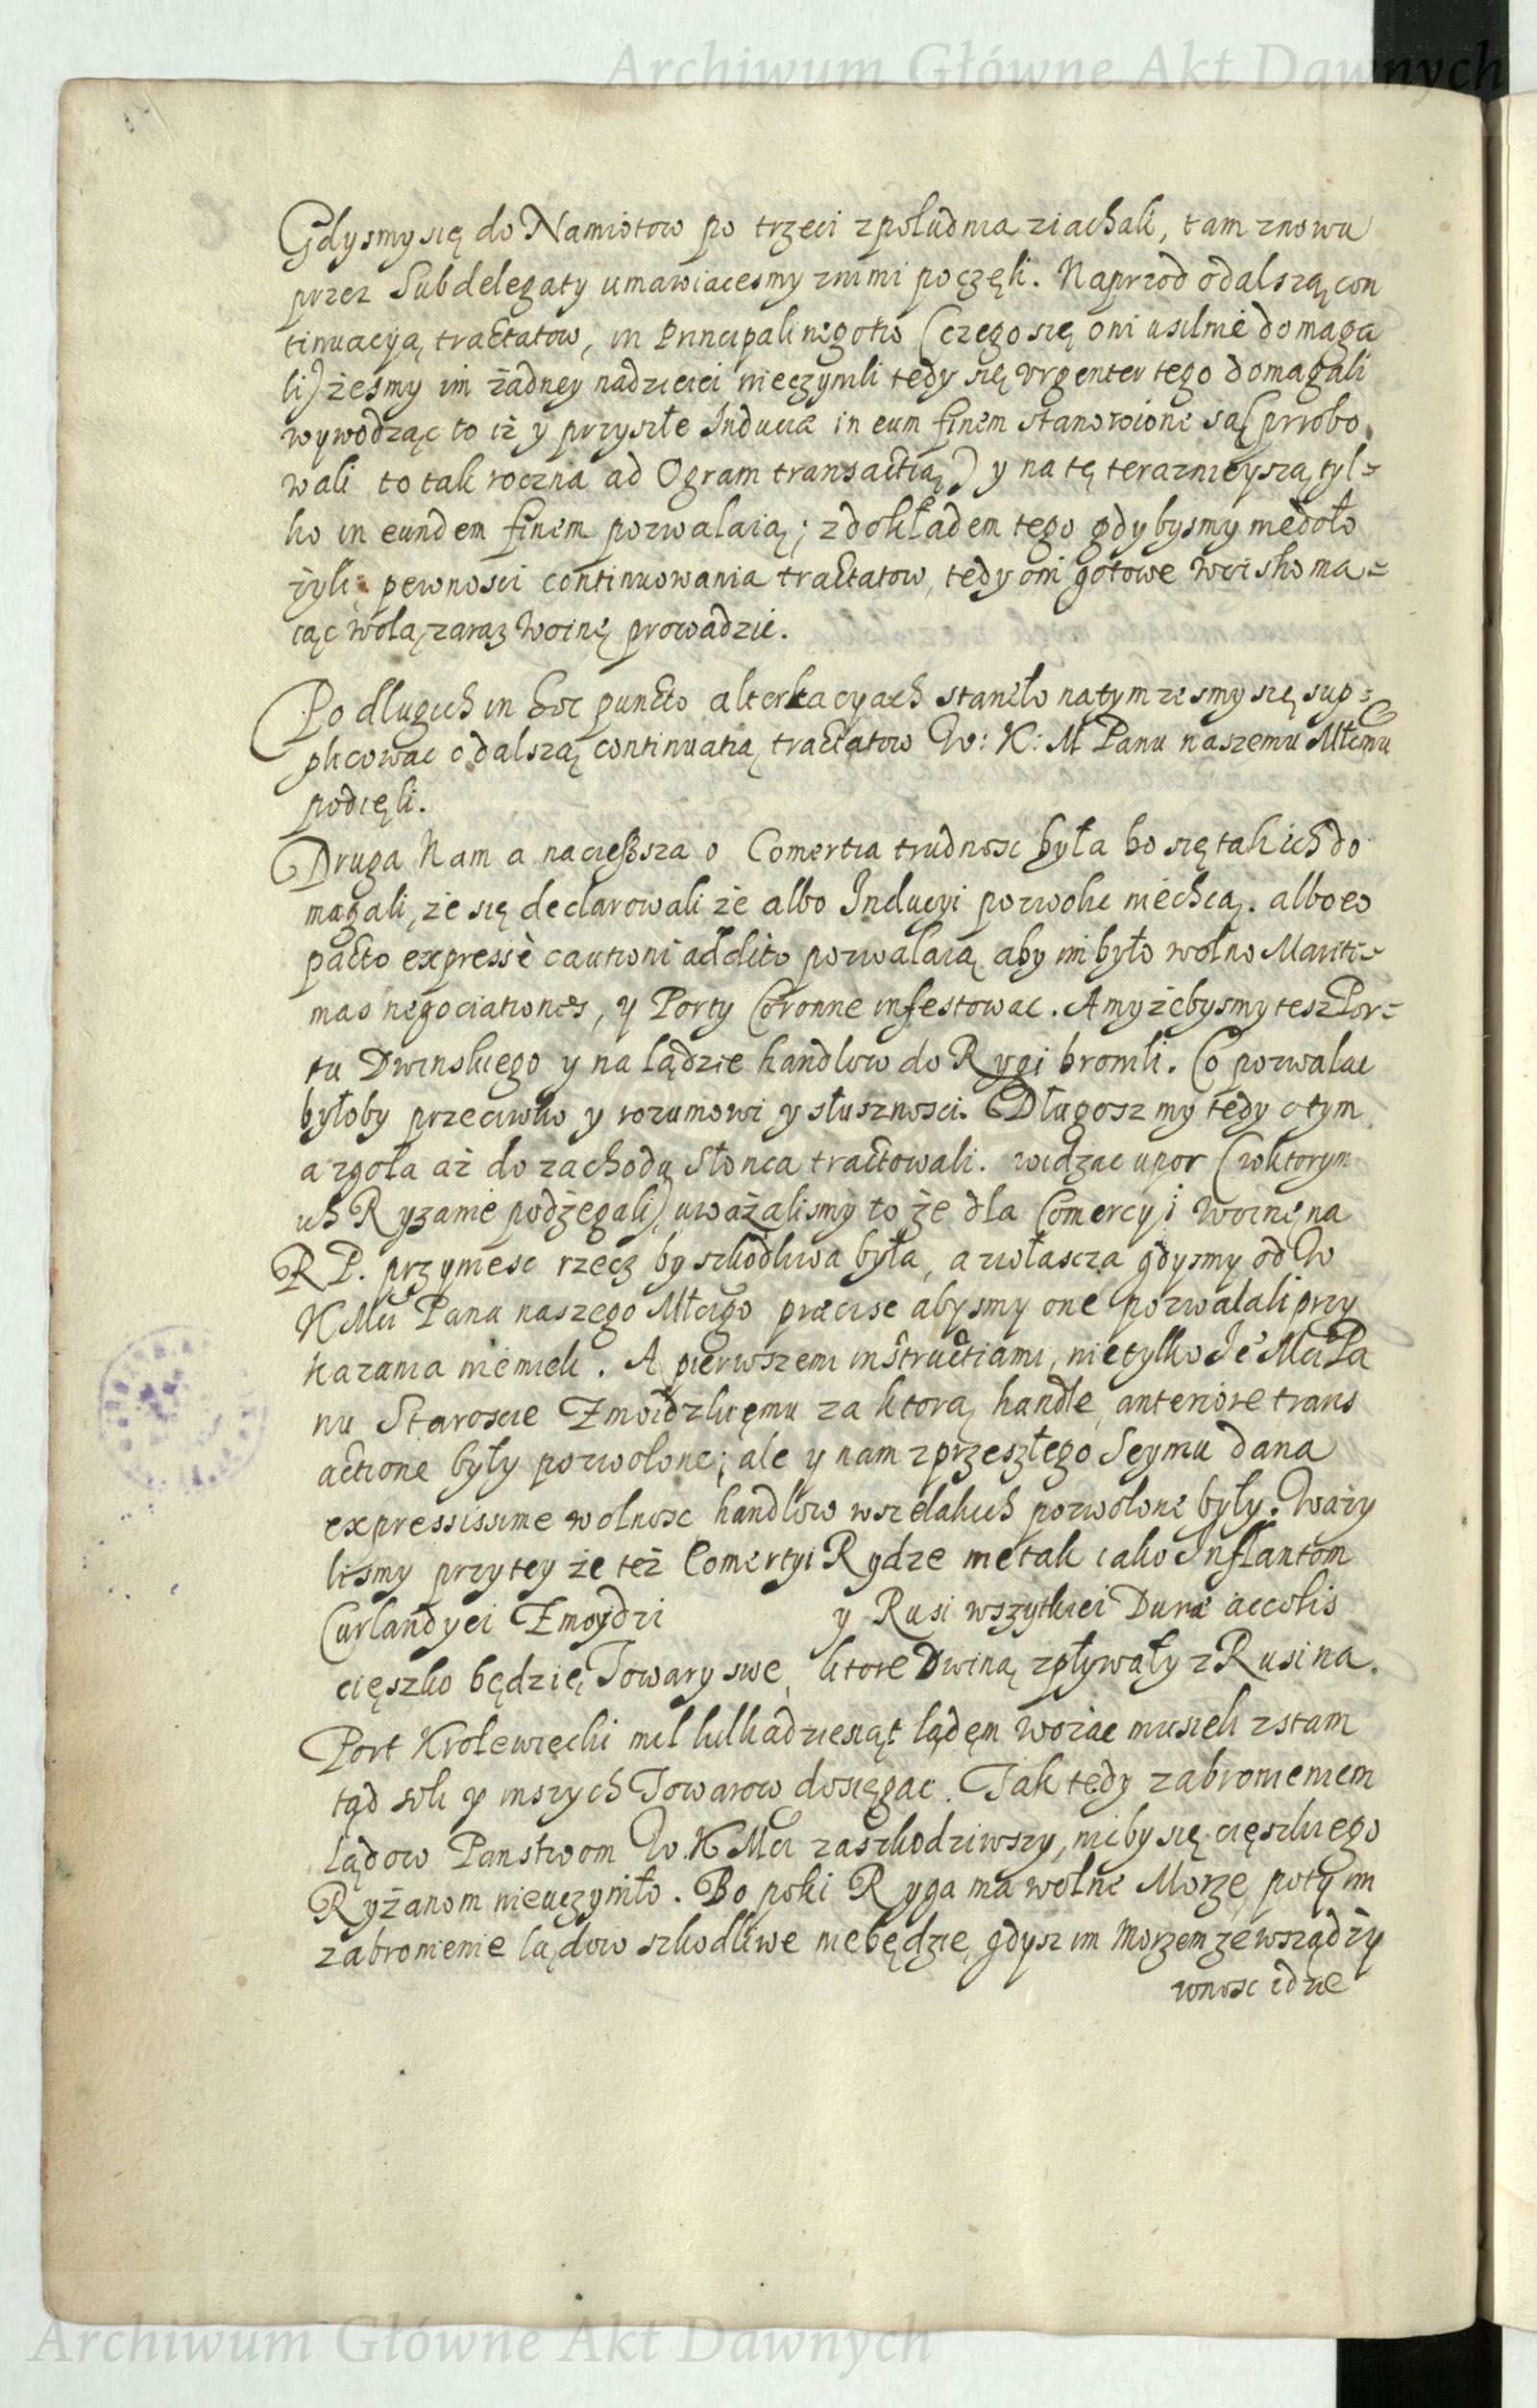 Archiwum Główne Akt Dawnych
Gdysmy się do Namiotow po trzeci zpołudnia ziachali, tam znowu
przez Subdelegaty umawiacesmy znimi poczęli. Naprzod odalszą con
tinuacyą tractatow, in Principali negotio (czego się oni usilnie domaga
li) żesmy im żadney nadzieiei nieczynili tedy się urgenter tego domagali
wywodząc to iż y przyszłe Induciæ in eum finem stanowione są (probo
wali to tak roczną ad Ogram transactią) y na tę teraznieyszą tyl=
ko in eundem finem pozwalaią; zdokładem tego gdybysmy niedoło
żyli pewnosci continuowania tractatow, tedy oni gotowe woisko ma=
iąc wolą zaraz woinę prowadzic.
Po długich in hoc puncto alterkacyach staneło natym zesmy się sup=
plicowac odalszą continuatią tractatow W: K: M Panu naszemu Młemu
podięli.
Druga Nam a nacięższa o Comertia trudnosc była bo się tak ich do
magali, że się declarowali że albo Inducyi pozwolic niechcą. albo eo
pacto expressè cautioni addito pozwalaią aby im było wolno Mariti=
mas negociationes, y Porty Coronne infestowac. A my żebysmy tesz Por=
tu Dwinskiego y na lądzie handlow do Rygi bronili. Co pozwalac
byłoby przeciwko y rozumowi y słusznosci. Długosz my tedy o tym
a zgoła aż do zachodu Słonca tractowali. widząc upor (wktorym
ich Ryzanie podżegali) uważalismy to że dla Comercyi Woinę na
RP. przyniesc rzecz by szkodliwa była, a zwłascza gdysmy od W
KMci Pana naszego Młciego præcise abysmy one pozwalali przy
kazania niemieli. A pierwszemi instructiami, nietylko Je Mci Pa
nu Staroscie Zmoidzkiemu za ktorą handle anteriore trans
actione były pozwolone; ale y nam zprzeszłego Seymu daną
expressissime wolnosc handlow wszelakich pozwolone były. Waży
lismy przytey że też Comertyi Rydze nietak iako Inflantom
Curlandyei Zmoydzi y Rusi wszytkiei Dunæ accolis
cięszko będzie, Towary swe, ktore Dwiną zpływały z Rusi na
Port Krolewięcki mil kilkadziesiąt lądem woziac musieli z stam
tąd soli y inszych Towarow dosięgac. Tak tedy zabronieniem
Lądow Panstwom W. K Mci zaszkodziwszy, nicby się cięszkiego
Ryżanom nieuczyniło. Bo poki Ryga ma wolne Morze, potym
zabronienie lądow szkodliwe niebędzie, gdysz im Morzem zewsząd ży
wnosc idzie
Archiwum Główne Akt Dawnych